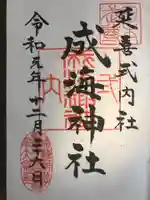 延喜式内社
成海神社
令和元年十二月二十八日